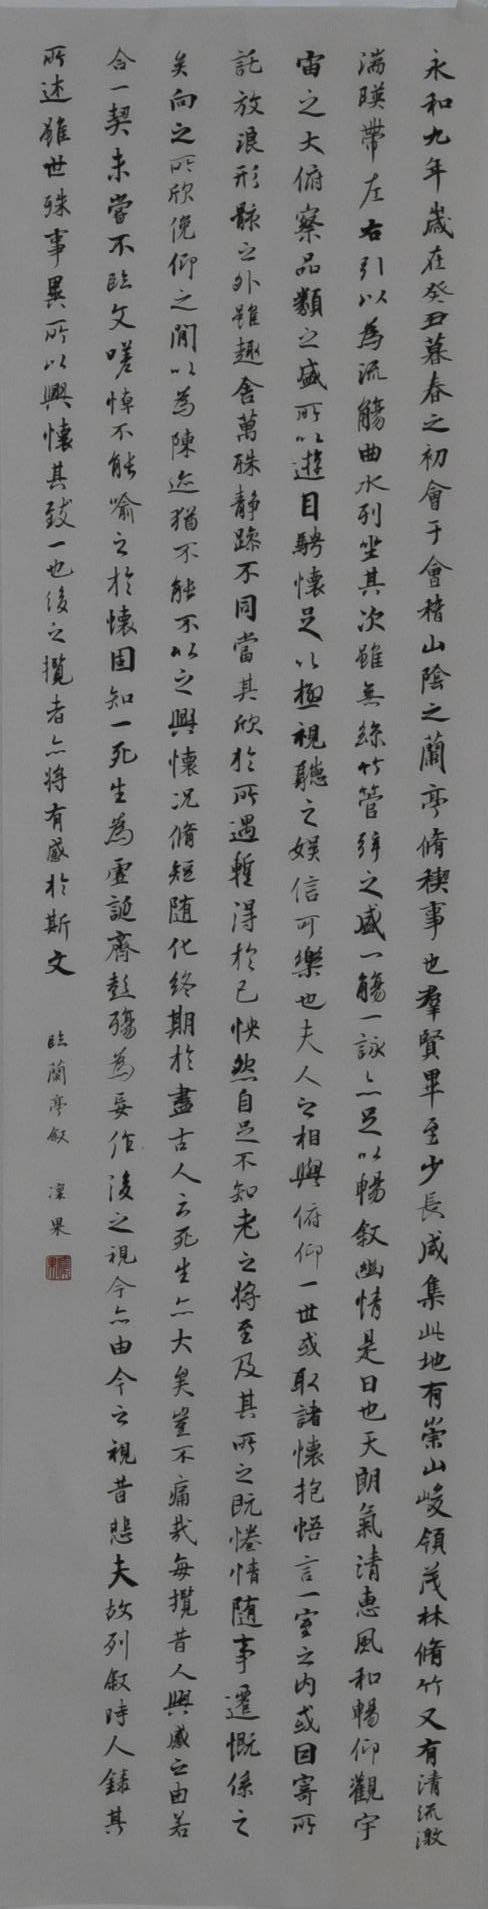 永和九年歲在癸丑暮春之初會于會稽山陰之蘭亭脩稧事也羣賢畢至少長咸集此地有崇山峻領茂林脩竹又有清流激
湍暎帶左右引以為流觴曲水列坐其次雖無絲竹管弦之盛一觴一詠亦足以暢敘幽情是日也天朗氣清惠風和暢仰觀宇
宙之大俯察品類之盛所以遊目騁懷足以極視聽之娛信可樂也夫人之相與俯仰一世或取諸懷抱悟言一室之內或因寄所
託放浪形骸之外雖趣舍萬殊靜躁不同當其欣於所遇暫得於己怏然自足不知老之將至及其所之既惓情隨事遷慨係之
矣向之所欣俛仰之間以為陳迹猶不能不以之興懷况脩短隨化終期於盡古人云死生亦大矣豈不痛哉每攬昔人興感之由若
合一契未嘗不臨文嗟悼不能喻之於懷固知一死生為虛誕齊彭殤為妄作後之視今亦由今之視昔悲夫故列敘時人錄其
所述雖世殊事異所以興懷其致一也後之攬者亦將有感於斯文
臨蘭亭敘 凜果